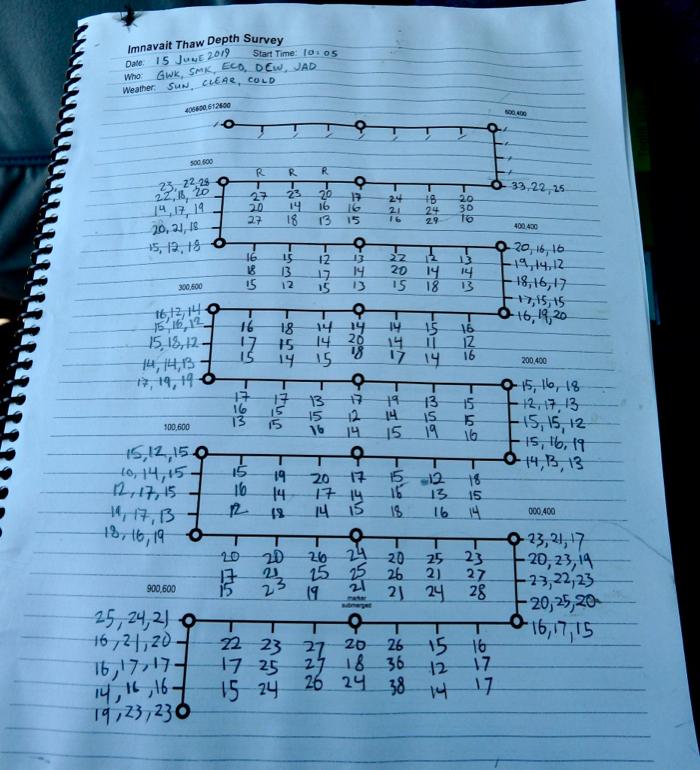 Imnavait Thaw Depth Survey
Date: 15 JUNE 2019 Start Time: 10:05
Who: GWK, SMK, ECO, DCW, JAD
Weather: SUN, CLEAR, COLD
406600,612600
600,400
500,600
R R R
23, 22, 28
33, 22, 25
22, 18, 20 27 23 20 17 24 18 20
14, 17, 19 20 14 16 16 21 24 30
20, 21, 18 27 18 13 15 16 29 16
400,400
15, 12, 18
20, 16, 16
16 15 12 13 22 12 13 19, 14, 12
18 13 17 14 20 14 14 18, 16, 17
300,600 15 12 15 13 15 18 13 17, 15, 15
16, 12, 14 16, 19, 20
15, 16, 12 16 18 14 14 14 15 16
15, 18, 12 17 15 14 20 14 11 12
14, 14, 13 15 14 15 18 17 14 16
200,400
17, 19, 19
15, 16, 18
17 17 13 17 19 13 15 12, 17, 13
16 15 15 12 14 15 15 15, 15, 12
100,600 13 15 16 14 15 19 16 15, 16, 19
15, 12, 15 14, 13, 13
10, 14, 15 15 19 20 17 15 12 18
12, 17, 15 16 14 17 14 15 13 15
19, 17, 13 12 18 14 15 18 16 14
000,400
18, 16, 19
23, 21, 17
20 20 26 24 20 25 23 20, 23, 19
17 21 25 25 26 21 27 23, 22, 23
15 23 19 21 21 24 28 20, 25, 20
900,600
marker
submerged
25, 24, 21 16, 17, 15
16, 21, 20 22 23 27 20 26 15 16
16, 17, 17 17 25 27 18 36 12 17
14, 16, 16 15 24 26 24 38 14 17
19, 23, 23